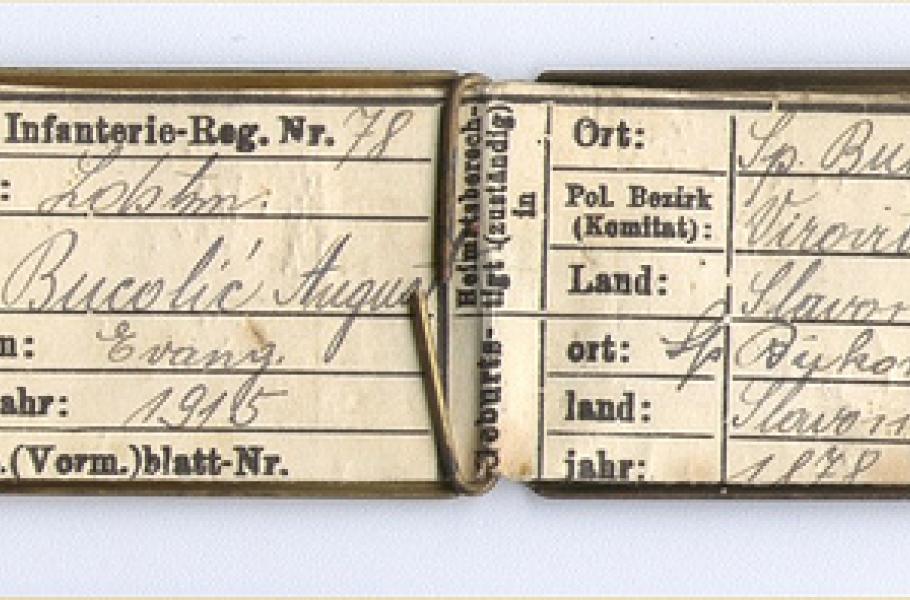 Infanterie-Reg. Nr. 78
: Ldstm.
Bucolić August
n: Evang.
ahr: 1915
.(Vorm.)blatt-Nr.
Heimatsberech-
tigt (zuständig)
in
Ort: Sp. Buk
Pol. Bezirk
(Komitat): Virovit
Land: Slavon
Geburts-
ort: Sp Bukov
land: Slavon
jahr: 1878